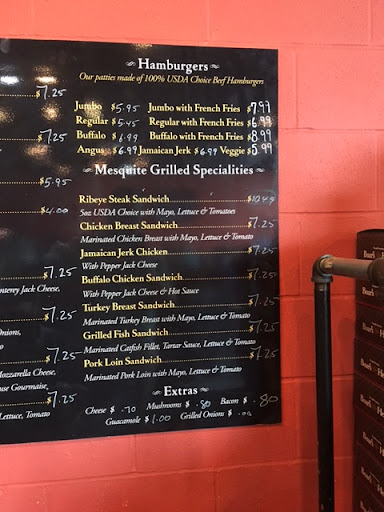 Hamburgers
Our patties made of 100% USDA Choice Beef Hamburgers
Jumbo $5.95 Jumbo with French Fries $7.99
Regular $5.45 Regular with French Fries $6.99
Buffalo $6.99 Buffalo with French Fries $8.99
Angus $6.99 Jamaican Jerk $6.99 Veggie $5.99
Mesquite Grilled Specialities
Ribeye Steak Sandwich $10.49
5oz USDA Choice with Mayo, Lettuce & Tomatoes
Chicken Breast Sandwich $7.25
Marinated Chicken Breast with Mayo, Lettuce & Tomato
Jamaican Jerk Chicken $7.25
With Pepper Jack Cheese
Buffalo Chicken Sandwich $7.25
With Pepper Jack Cheese & Hot Sauce
Turkey Breast Sandwich $7.25
Marinated Turkey Breast with Mayo, Lettuce & Tomato
Grilled Fish Sandwich $7.25
Marinated Catfish Fillet, Tartar Sauce, Lettuce & Tomato
Pork Loin Sandwich $7.25
Marinated Pork Loin with Mayo, Lettuce & Tomato
Extras
Cheese $.70 Mushrooms $.80 Bacon $.80
Guacamole $1.00 Grilled Onions $
$7.25
$7.25
$5.95
$4.00
$7.25
Jack Cheese,
Onions,
$7.25
Mozzarella Cheese,
$7.25
Gourmaise,
$7.25
Lettuce, Tomato